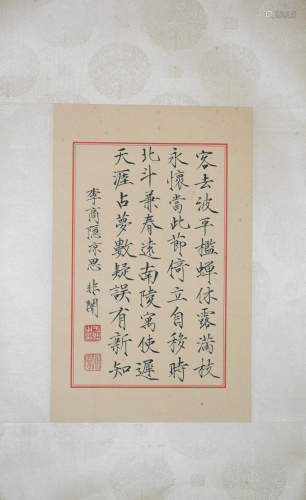 客去波平檻蟬休露滿枝
永懷當此節倚立自移時
北斗兼春遠南陵寓使遲
天涯占夢數疑誤有新知
李商隱涼思 非闇